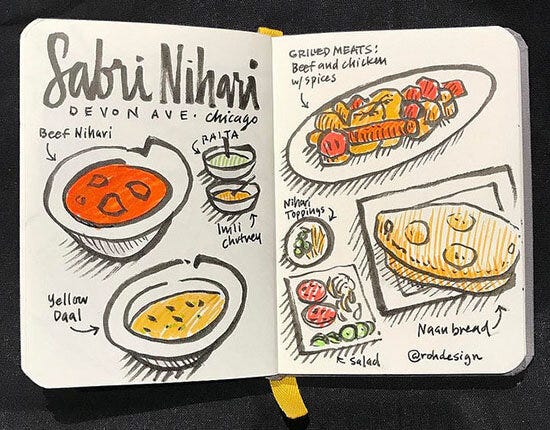 Sabri Nihari
DEVON AVE · chicago
Beef Nihari
RAITA
Imli
chutney
Yellow
Daal
GRILLED MEATS:
Beef and chicken
w/spices
Nihari
Toppings
Salad
Naan bread
@rohdesign